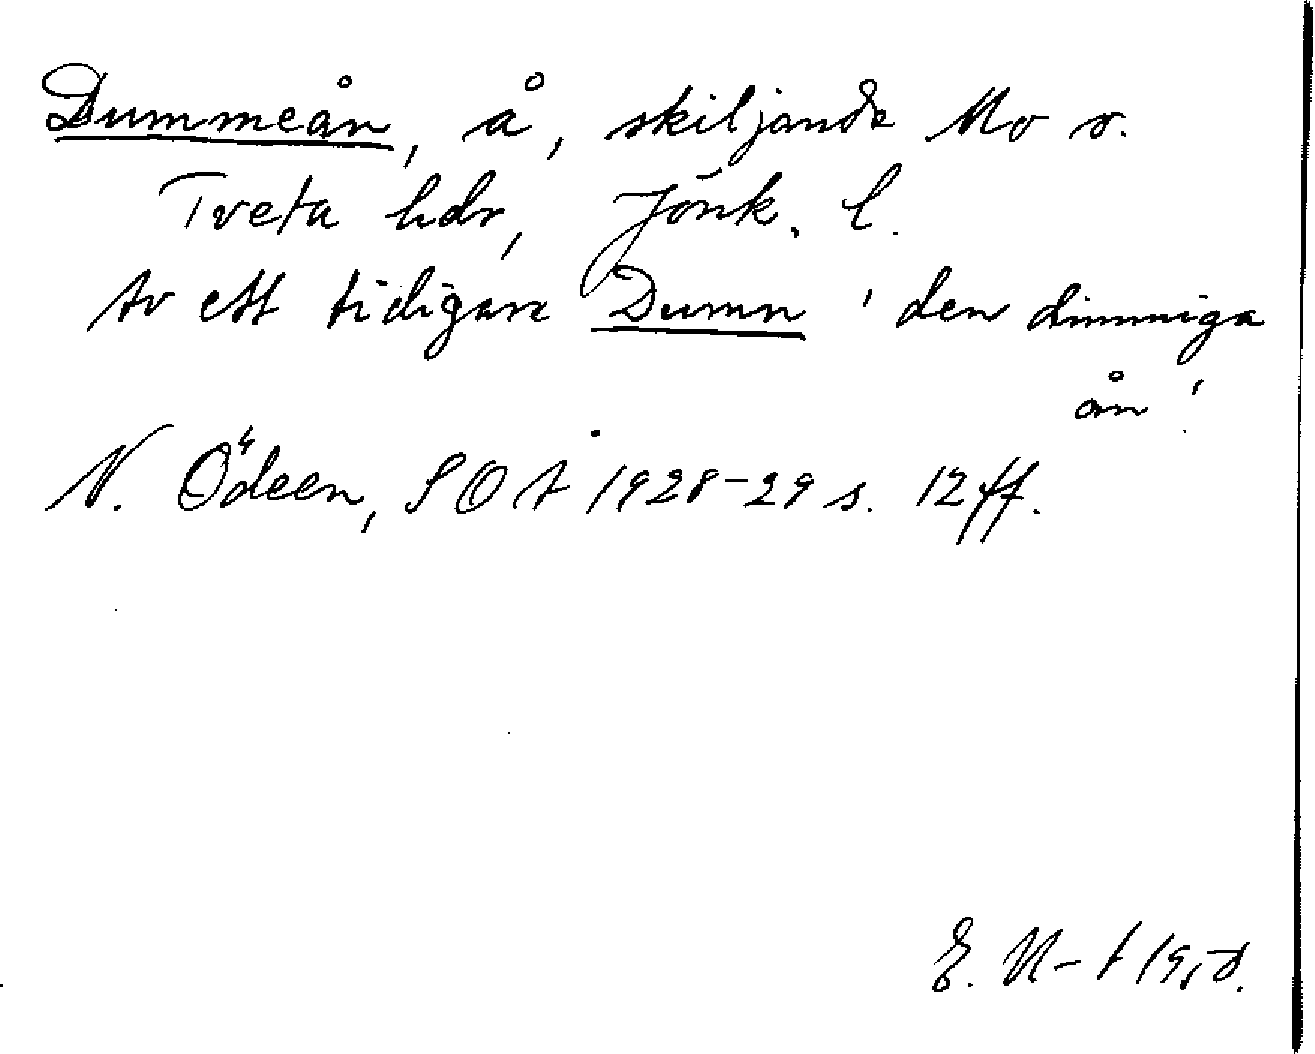 Dummeån, å, skiljande Mo o.
Tveta hdr, Jönk. l.
Av ett tidigare Dumn 'den dimmiga
ån'.
N. Ödeen, SOÅ 1928-29 s. 12 ff.
E. N-t